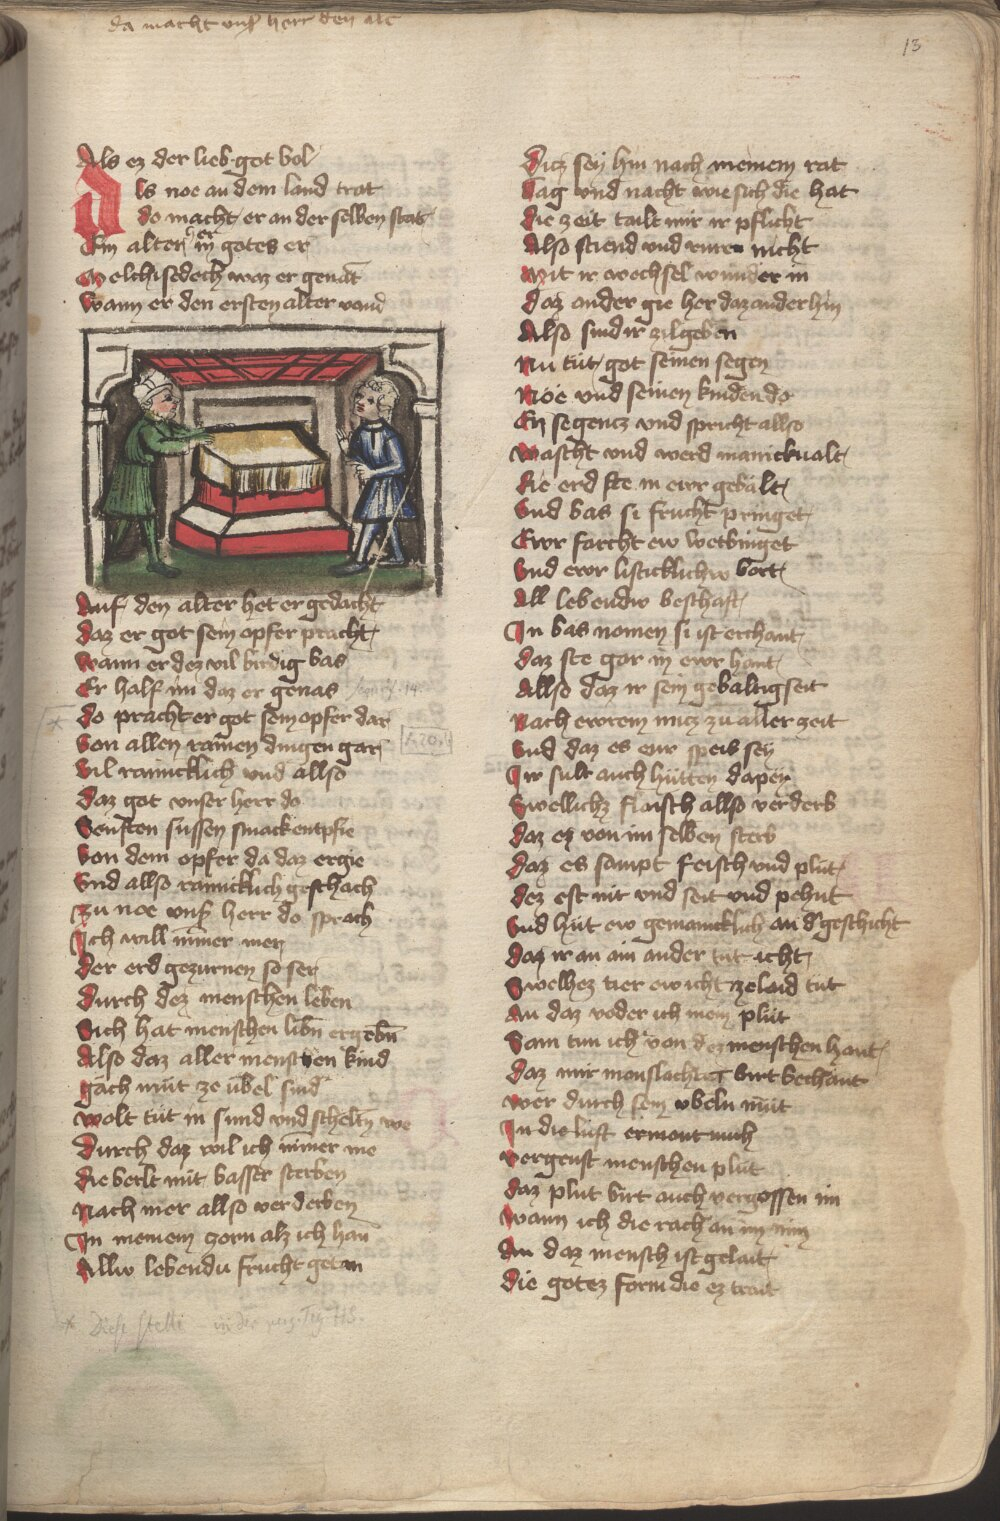 da macht unser herr den alt
13
Als ez der lieb got wol
Als noe an dem land trat
do macht er an der selben stat
Ein alter er in gotes er
Melchisedech waz er genant
Wann er den ersten alter vand
Auf den alter het er gedacht
daz er got sein opfer pracht
wann er dez vil wirdig was
Er half im daz er genas
do pracht er got sein opfer dar
Von allen rainen dingen gar
Vil rainicklich und allso
daz got unser herr do
Senften sussen smack entpfie
Von dem opfer da daz ergie
Und allso rainicklich geschach
Zu noe unser herr do sprach
Ich will immer mer
der erd gezurnen so ser
durch dez menschen leben
Sich hat menschen libn ergebn
Also daz aller menschen kind
gach mut ze übel sind
wolt tut in sund und scheltn we
Durch daz wil ich immer me
die welt mit wasser sterben
Nach mer allso verderben
In meinem zorn alz ich han
Allw lebendu frucht getan
Diese Stelle
Ditz sey hin nach meinem rat
Tag und nacht wie sich die hat
die zeit tailt mir ir pflicht
Also stiend und ruren nicht
Mit ir wechsel wunder in
daz ander gie her daz ander hin
Also sind ir zil geben
Nu tut got seinen segen
Noe und seinen kinden do
Er segentz und spricht allso
Wascht und werd manickvalt
die erd ste in ewr gewalt
Und was si frucht pringet
Ewr farcht ew betwinget
Und ewr listicklichw wort
All lebendiv beschaft
In was nomen si ist erchant
daz ste gar in ewr hant
Allso daz ir sein gewaltig seit
Nach ewrem nucz zu aller zeit
Und daz es eur speis sey
Ir sult auch hütten dapey
Swellichz flaisch allso verderb
daz ez von im selben sterb
daz es sampt fleisch und plut
dez est nit und seit und pehut
Und hüt ew gemainicklich an der geschicht
daz ir an ain ander tut icht
Swelhez tier ew icht ze laid tut
An daz voder ich mein plut
Sam tun ich von dez menschen hant
daz mir manslachter wirt bechant
wer durch sein ubeln mut
In die lust ermont mich
vergeust menschen plut
daz plut wirt auch vergossen im
wann ich die rach an im nim
An daz mensch ist gelait
die gotez form die ez trait